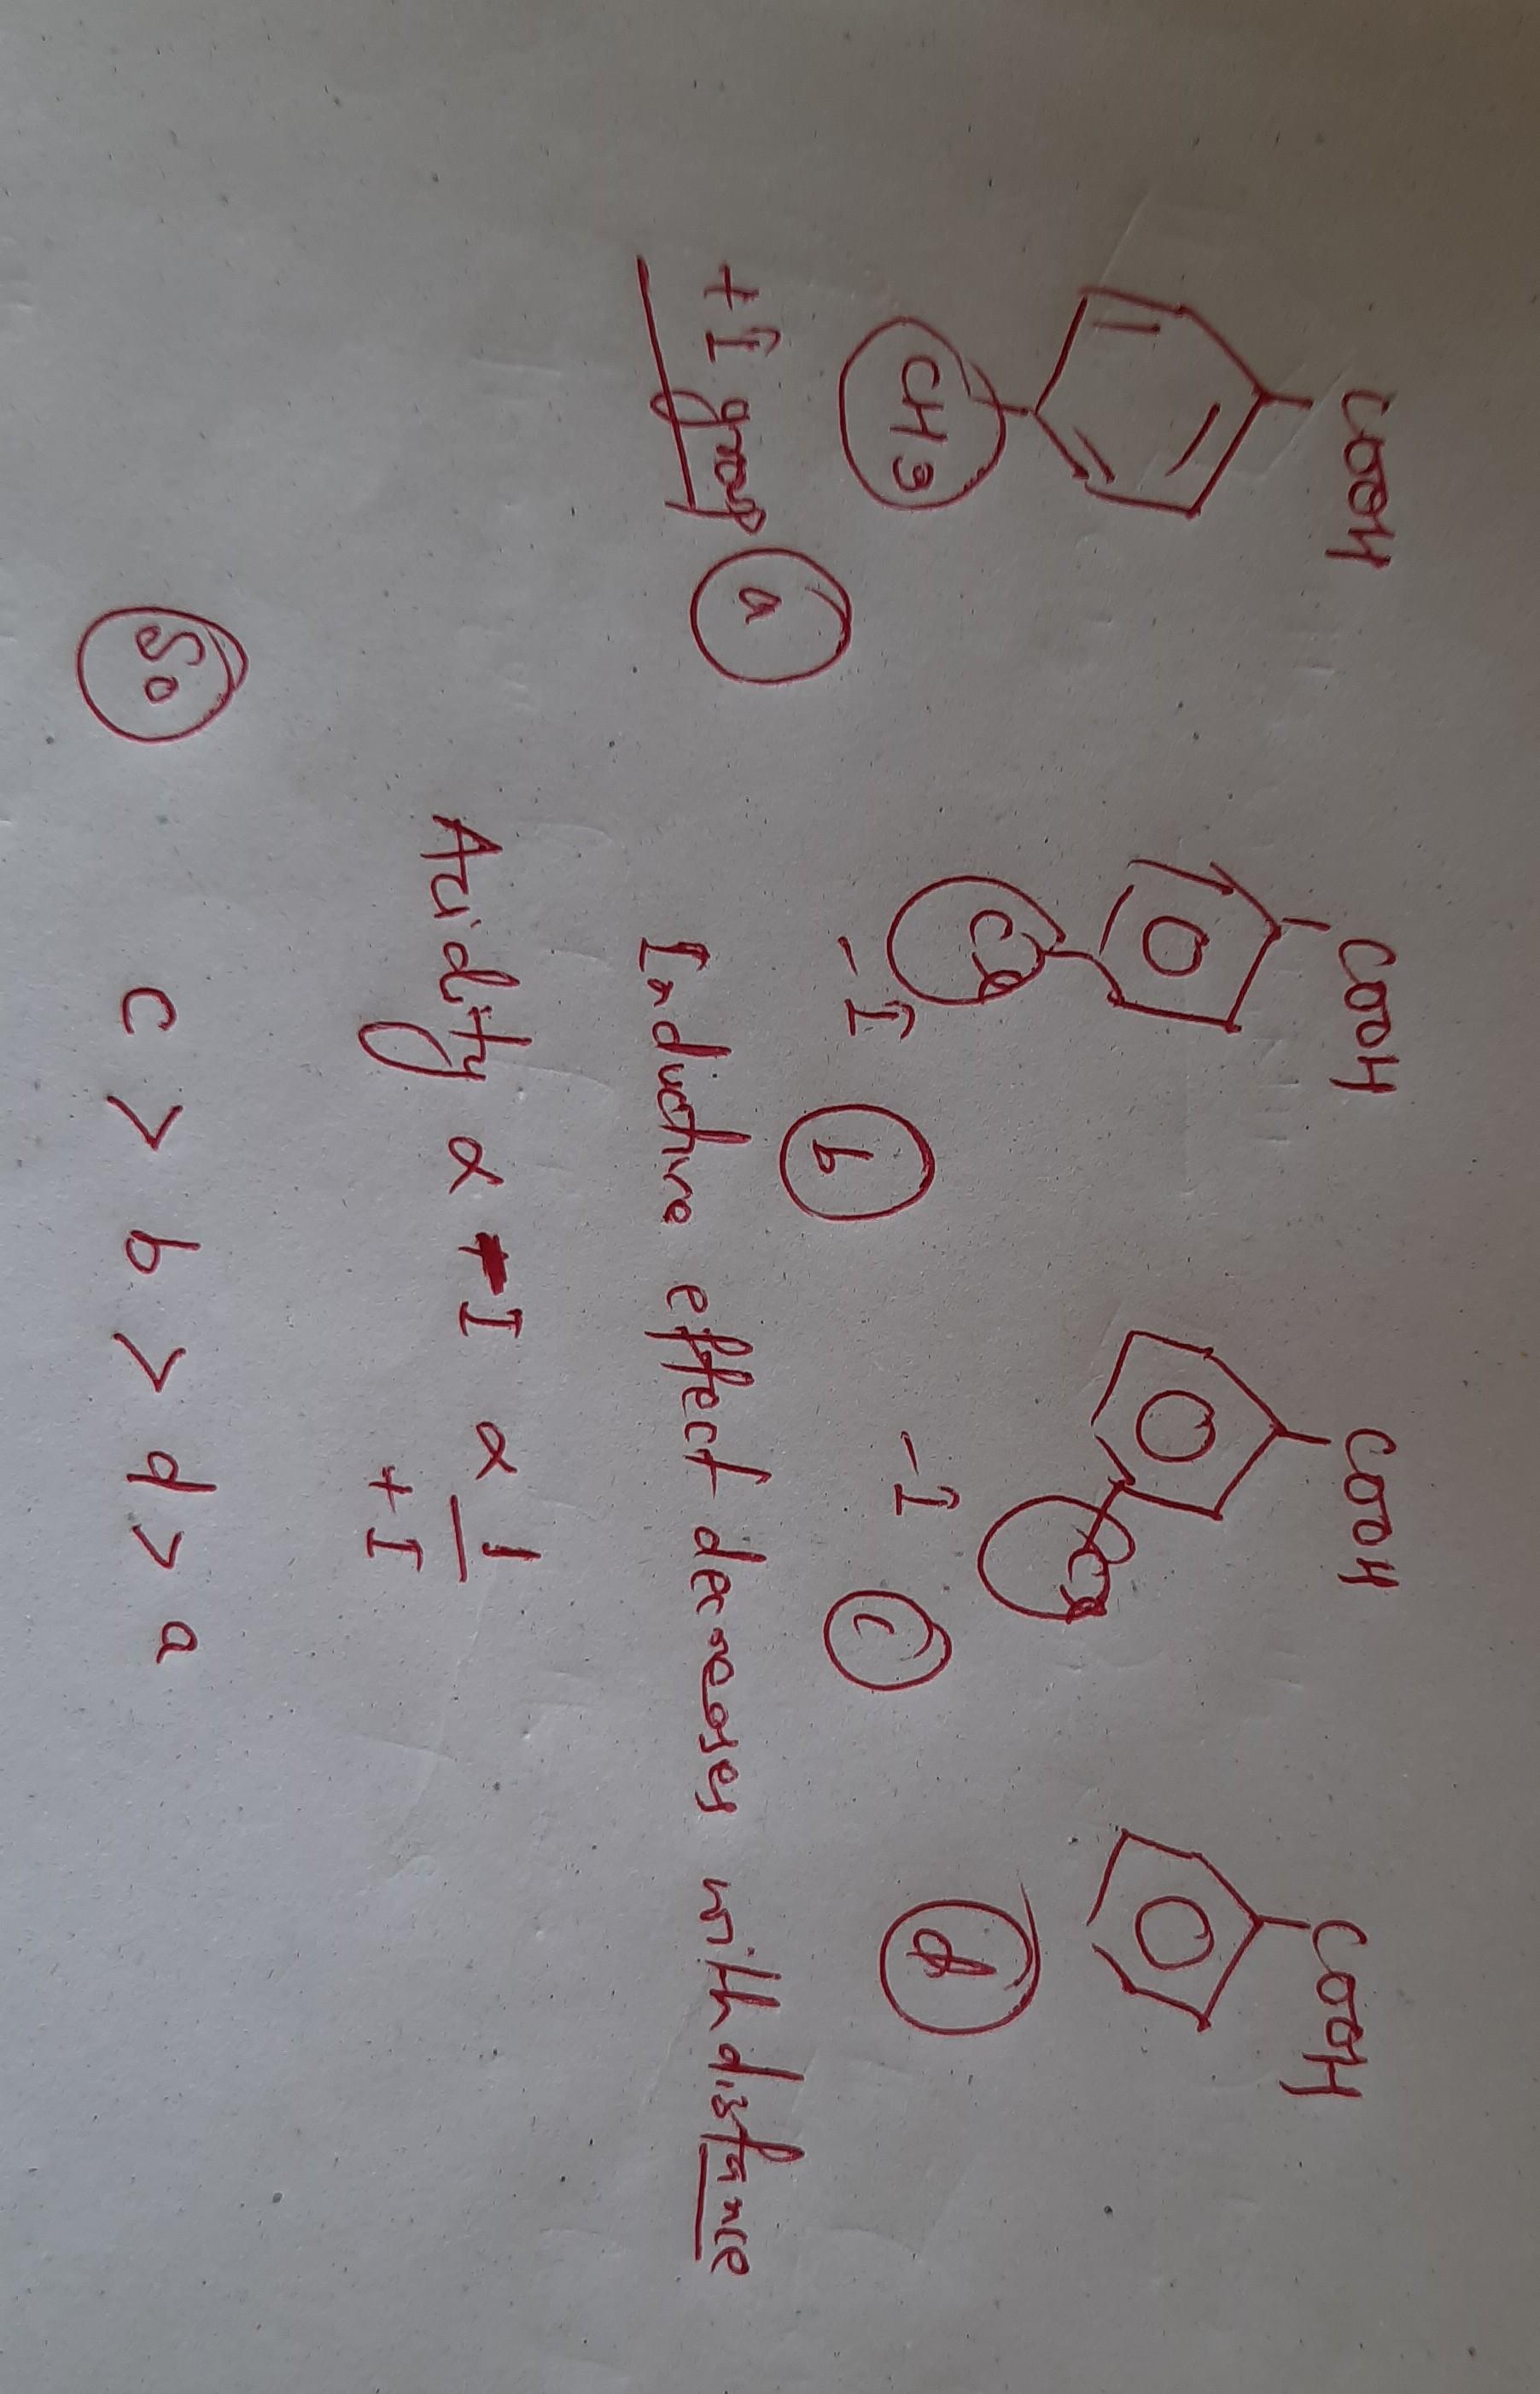 COOH COOH COOH COOH
CH3 Cl Cl
+I group -I -I
a b c d
Inductive effect decreases with distance
Acidity α -I α 1/+I
So
c > b > d > a